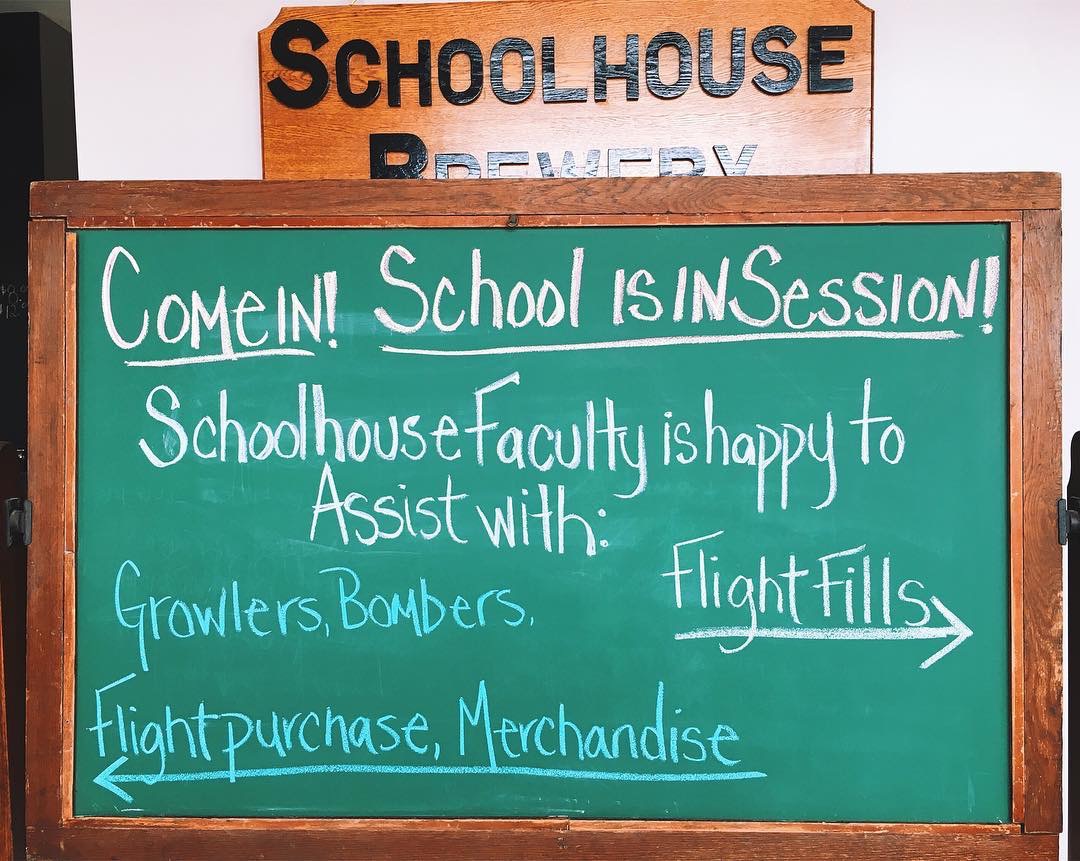 SCHOOLHOUSE
BREWERY
COME IN! School IS IN SESSION!
Schoolhouse Faculty is happy to
Assist with:
Flight Fills
Growlers, Bombers,
Flight purchase, Merchandise